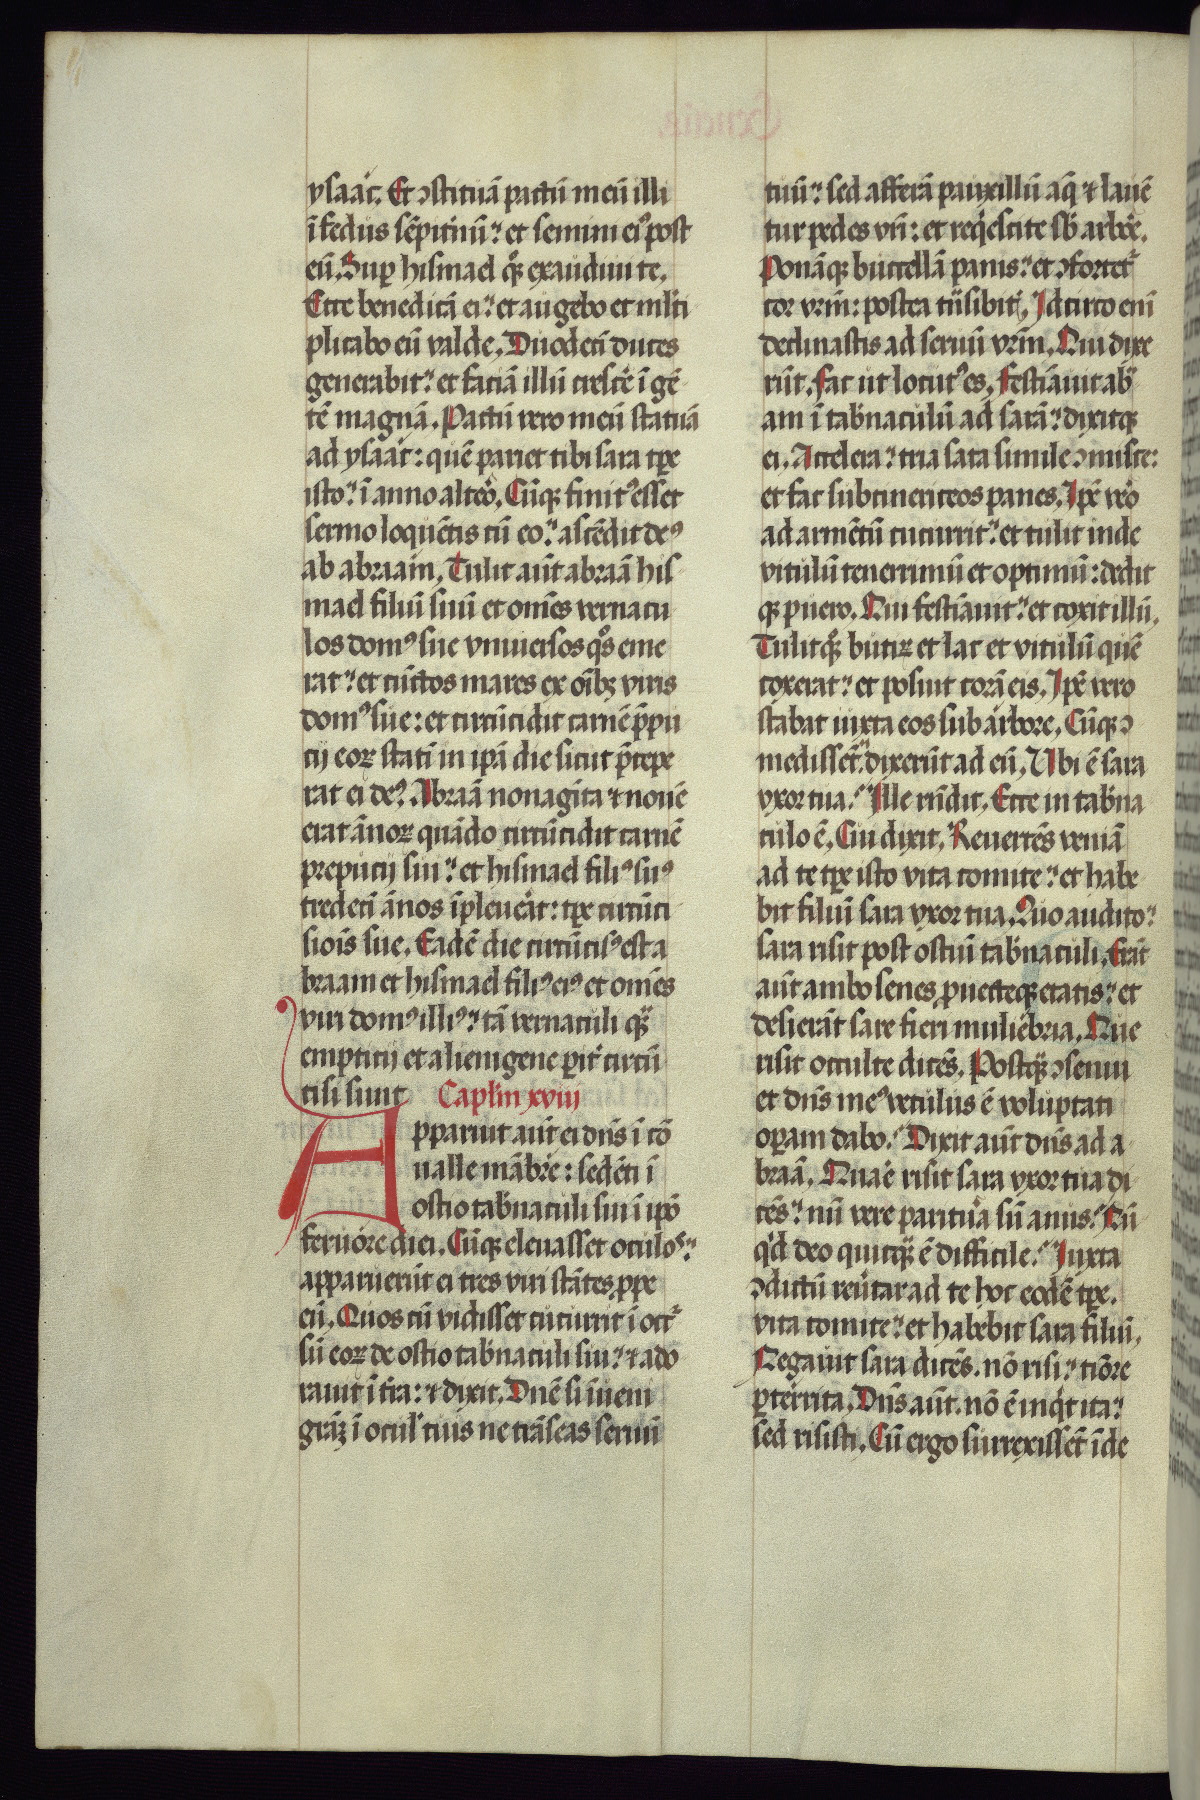 ysaac. Et ꝯstituā pactū meū illi
ī fedus sēpitnū: et semini eiꝰ post
eū. Suꝑ hismael qͦꝫ exaudiui te.
Ecce benedicā ei: et augebo et mlti
plicabo eū valde. Duodecī duces
generabit: et faciā illū crescē ī gē
tē magnā. Pactū vero meū statuā
ad ysaac: quē pariet tibi sara tꝑe
isto: ī anno alteͦ. Cūqꝫ finitꝰ esset
sermo loquētis cū eo: ascēdit deꝰ
ab abraam. Tulit aūt abraā his
mael filiū suū et om̄es vernacu
los domꝰ sue vniuersos qͦs eme
rat: et cūctos mares ex oībꝫ viris
domꝰ sue: et circūcidit carnē p̄pu
cij eoꝝ statī in ipā die sicut p̄cepe
rat ei deꝰ. Abraā nonagīta ⁊ nouē
erat ānoꝝ quādo circūcidit carnē
prepucij sui: et hismael filiꝰ suꝰ
tredecī ānos īpleuēat: tꝑe circūci
siois sue. Eadē die circūcisꝰ est a
braam et hismael filiꝰ eiꝰ et om̄es
viri domꝰ illiꝰ: tā vernaculi qͣꝫ
empticij et alienigene ꝑit̄ circū
cisi sunt Caplm xviii
Apparuit aūt ei dn̄s ī cō
ualle mābre: sedēti ī
ostio tab̄naculi sui ī ipō
feruore diei. Cūqꝫ eleuasset oculoˢ:
apparuerūt ei tres viri stātes ꝓpe
eū. Quos cū vidisset cucurrit ī occͬ
sū eoꝝ de ostio tab̄naculi sui: ⁊ ado
rauit ī t̄ra: ⁊ dixit. Dn̄e si īueni
grāꝫ ī ocul̓ tuis ne trāseas seruū
tuū: sed afferā pauxillū aq̄ ⁊ lauē
tur pedes vr̄i: et reqͥescite sb̄ arboͤ.
Ponāqꝫ buccellā panis: et ꝯfortetͬ
cor vr̄m: postea tn̄sibitͥ. Idcirco eni
declinastis ad seruū vr̄m. Qui dixe
rūt. Fac ut locutꝰ es. Festiāuit abͣ
am ī tab̄naculū ad sarā: dixitqꝫ
ei. Accelera: tria sata simile ꝯmisce:
et fac subcinericeos panes. Ip̄e veͦo
ad armētū cucurrit: et tulit inde
vitulū tenerrimū et optimū: dedit
qꝫ puero. Qui festiāuit: et coxit illū.
Tulitqͦꝫ butiꝝ et lac et vitulū quē
coxerat: et posuit corā eis. Ip̄e vero
stabat iuxta eos sub arbore. Cūqꝫ ꝯ
medissēt: dixerūt ad eū. Ubi ē sara
vxor tua? Ille rn̄dit. Ecce in tab̄na
culo ē. Cui dixit. Reuertēs veniā
ad te tꝑe isto vita comite: et habe
bit filiū sara vxor tua. Quo audito:
sara risit post ostiū tab̄naculi. Erāt
aūt ambo senes ꝓuecteqꝫ etatis: et
desierāt sare fieri muliebria. Que
risit occulte dicēs. Postqͣꝫ ꝯsenui
et dn̄s meꝰ vetulus ē voluptati
oꝑam dabo? Dixit aūt dn̄s ad a
braā. Quaͤ risit sara vxor tua di
cēs: nū vere paritura sū anus? Nū
qͥd deo quicqͣꝫ ē difficile? Iuxta
ꝯdictū reūtar ad te hoc eodē tꝑe.
vita comite: et habebit sara filiū.
Negauit sara dicēs. nō risi: tiōre
ꝑterrita. Dn̄s aūt. nō ē inqͥt ita:
sed risisti. Cū ergo surrexissēt īde